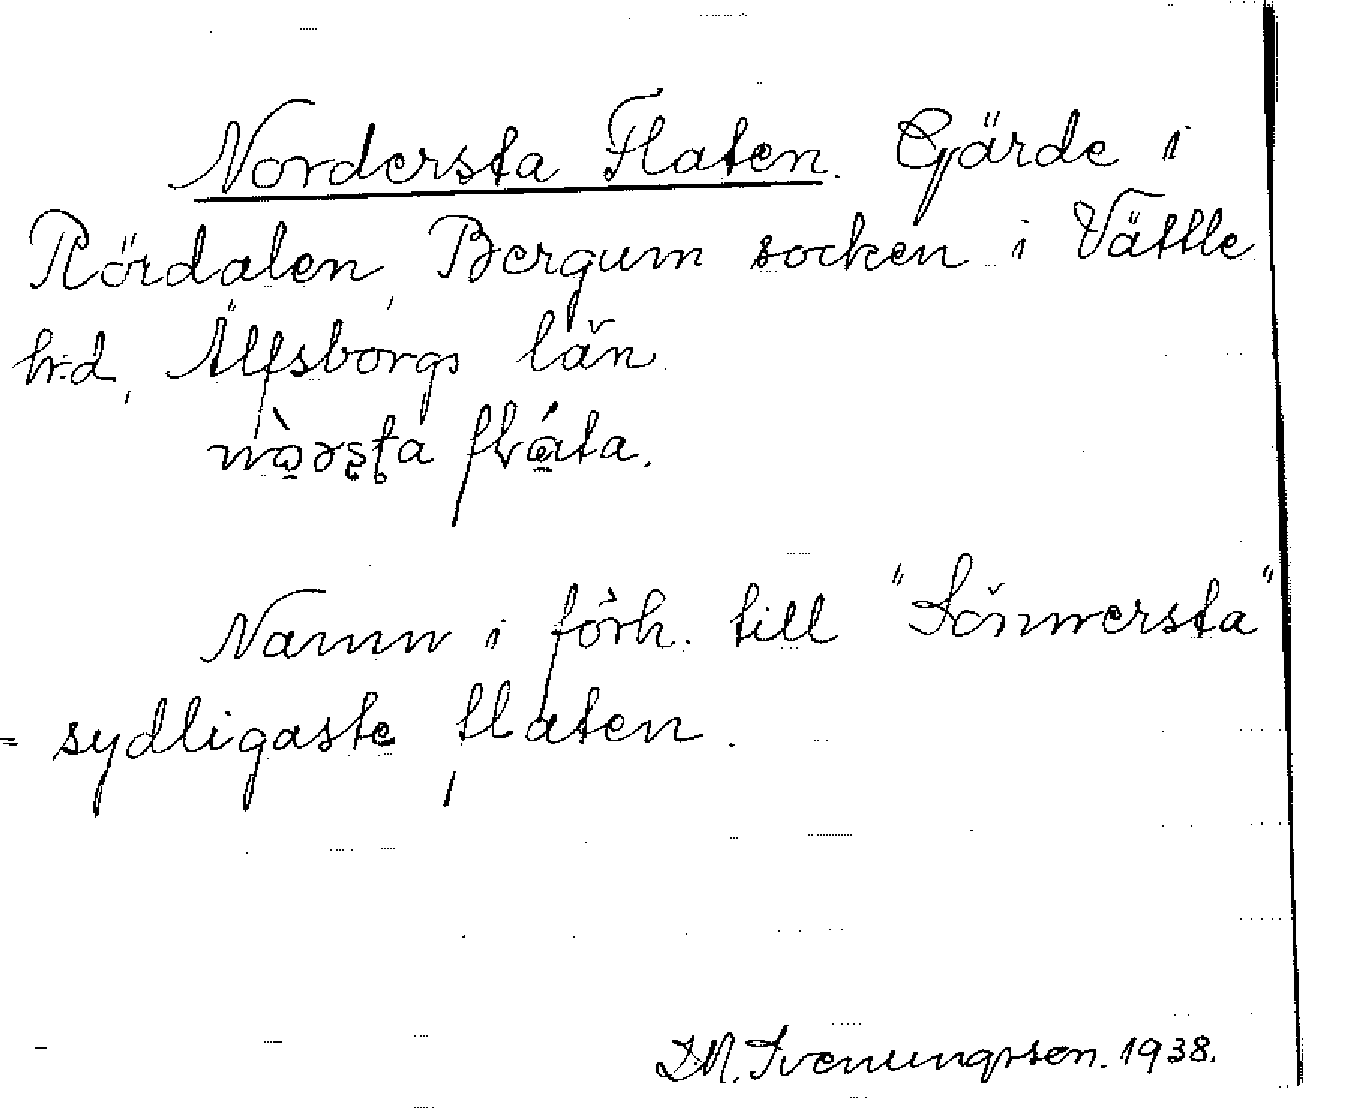 Nordersta Flaten. Gärde i
Rördalen, Bergum socken i Vättle
hrd, Älfsborgs län
Namn i förh. till "Sönnersta"
= sydligaste flaten.
Svenungsson. 1938.